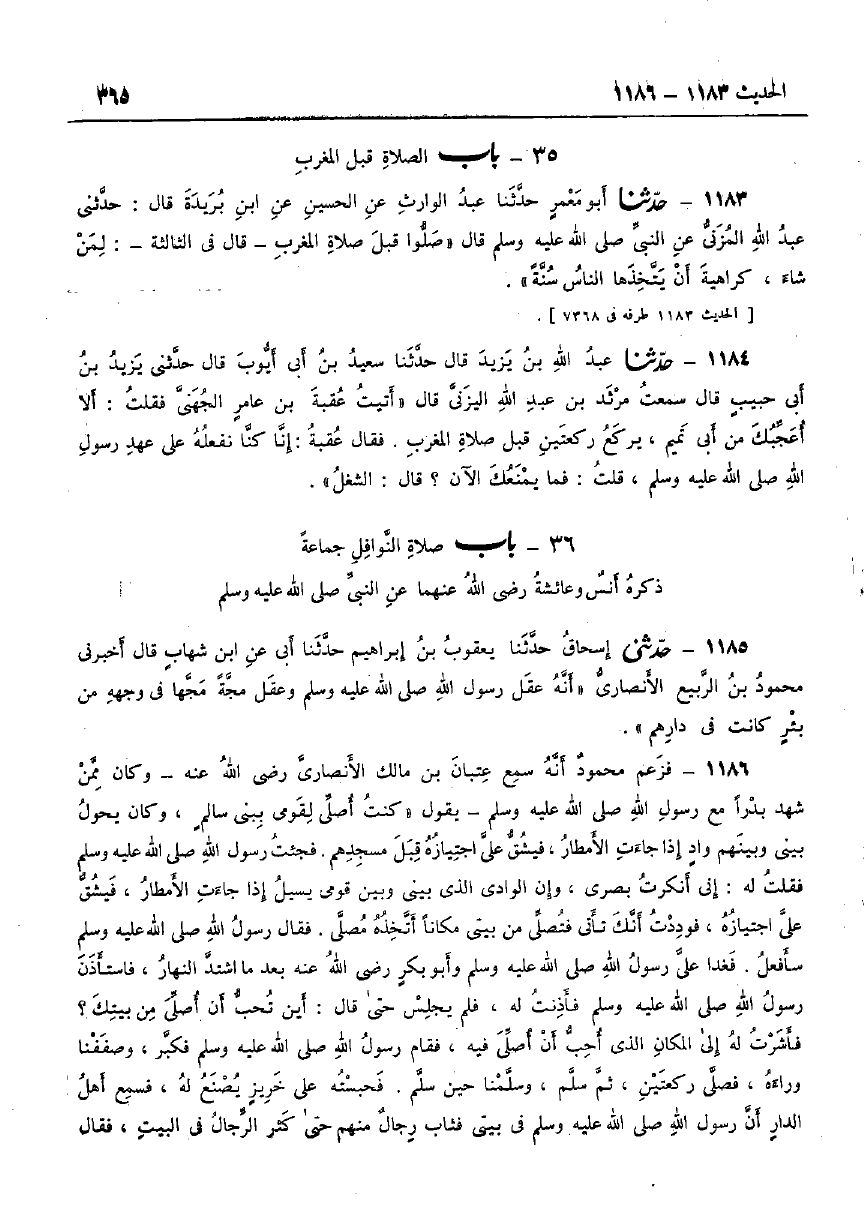 الحديث ١١٨٣ – ١١٨٦ ٣٦٥
٣٥ – باب الصلاةِ قبل المغربِ
١١٨٣ – حدّثنا أبو مَعْمَرٍ حدَّثَنا عبدُ الوارثِ عنِ الحسينِ عنِ ابنِ بُرَيدَةَ قال : حدَّثنى
عبدُ اللهِ المُزَنىُّ عنِ النبىِّ صلى الله عليه وسلم قال «صَلُّوا قبلَ صلاةِ المغربِ – قال فى الثالثة – : لِمَنْ
شاءَ ، كراهيةَ أنْ يَتَّخِذَها الناسُ سُنَّةً» .
[ الحديث ١١٨٣ طرفه فى ٧٣٦٨ ] .
١١٨٤ – حدّثنا عبدُ اللهِ بنُ يَزيدَ قال حدَّثَنا سعيدُ بنُ أبى أيُّوبَ قال حدثنى يَزيدُ بنُ
أبى حبيبٍ قال سمعتُ مرْثَد بن عبدِ اللهِ اليزَنىَّ قال «أتيتُ عُقبةَ بن عامرٍ الجُهَنىَّ فقلتُ : ألا
أُعَجِّبُكَ من أبى تَميم ، يركَعُ ركعتَينِ قبل صلاةِ المغربِ . فقال عُقبةُ : إنَّا كنَّا نفعلُهُ على عهدِ رسولِ
اللهِ صلى الله عليه وسلم ، قلتُ : فما يمْنَعُكَ الآن ؟ قال : الشغلُ» .
٣٦ – باب صلاةِ النَّوافلِ جماعةً
ذكرهُ أنسٌ وعائشةُ رضى اللهُ عنهما عنِ النبىِّ صلى الله عليه وسلم
١١٨٥ – حدّثنى إسحاقُ حدَّثَنا يعقوبُ بنُ إبراهيم حدَّثَنا أبى عنِ ابن شهابٍ قال أخبرنى
محمودُ بنُ الرَّبيع الأنصارىُّ «أنَّهُ عقَل رسول اللهِ صلى الله عليه وسلم وعقَل مجَّةً مَجَّها فى وجههِ من
بئْرٍ كانت فى دارِهم» .
١١٨٦ – فزَعم محمودٌ أنَّهُ سمِع عِتبانَ بن مالك الأنصارىَّ رضى اللهُ عنه – وكان مِمَّنْ
شهد بدْراً مع رسولِ اللهِ صلى الله عليه وسلم – يقول «كنتُ أُصلِّى لِقومى ببنى سالمٍ ، وكان يحولُ
بينى وبينَهم وادٍ إذا جاءَتِ الأمطارُ ، فيشُقُّ علىَّ اجتِيازُهُ قِبَلَ مسجدِهم . فجئتُ رسول اللهِ صلى الله عليه وسلم
فقلتُ له : إنى أنكرتُ بصرى ، وإن الوادى الذى بينى وبين قومى يسيلُ إذا جاءَتِ الأمطارُ ، فَيشُقُّ
علىَّ اجتيازُهُ ، فودِدْتُ أنَّكَ تأْتى فتُصلِّى من بيتى مكاناً أتَّخِذُهُ مُصلَّى . فقال رسولُ اللهِ صلى الله عليه وسلم
سأفعلُ . فغدا علىَّ رسولُ اللهِ صلى الله عليه وسلم وأبو بكرٍ رضى اللهُ عنه بعد ما اشتدَّ النهارُ ، فاستأذَنَ
رسولُ اللهِ صلى الله عليه وسلم فأذِنتُ له ، فلم يجلِسْ حتىٰ قال : أين تُحبُّ أن أُصلِّىَ مِن بيتِكَ ؟
فأشَرْتُ لهُ إلىٰ المكانِ الذى أُحِبُّ أنْ أُصلِّىَ فيه ، فقام رسولُ اللهِ صلى الله عليه وسلم فكبَّر ، وصفَفْنا
وراءَهُ ، فصلَّى ركعتَيْنِ ، ثمَّ سلَّم ، وسلَّمْنا حين سلَّم . فَحبسْتُه على خَزِيرٍ يُصْنَعُ لهُ ، فسمِع أهلُ
الدارِ أنَّ رسول اللهِ صلى الله عليه وسلم فى بيتى فثاب رِجالٌ منهم حتىٰ كَثر الرِّجالُ فى البيتِ ، فقال